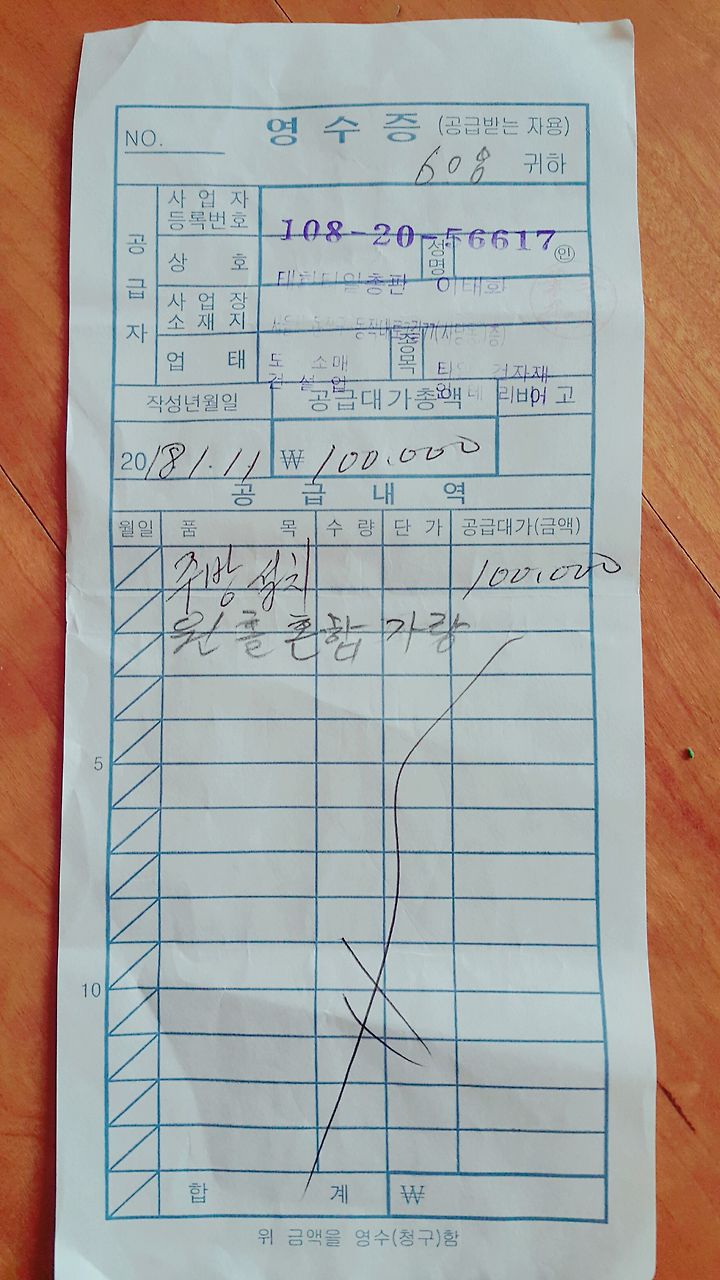 NO. 영 수 증 (공급받는 자용)
608 귀하
공급자
사업자등록번호 108-20-56617
상 호 태화타일총판 성명 이태화 ㊞
사업장소재지 동작대로
업 태 도 소매 건 설 업 종목 건자재
작성년월일 공급대가총액 비 고
20181.11 ₩ 100.000
공 급 내 역
월일 품 목 수 량 단 가 공급대가(금액)
주방 설치 100.000
원홀혼합 가랑
5
10
합 계 ₩
위 금액을 영수(청구)함